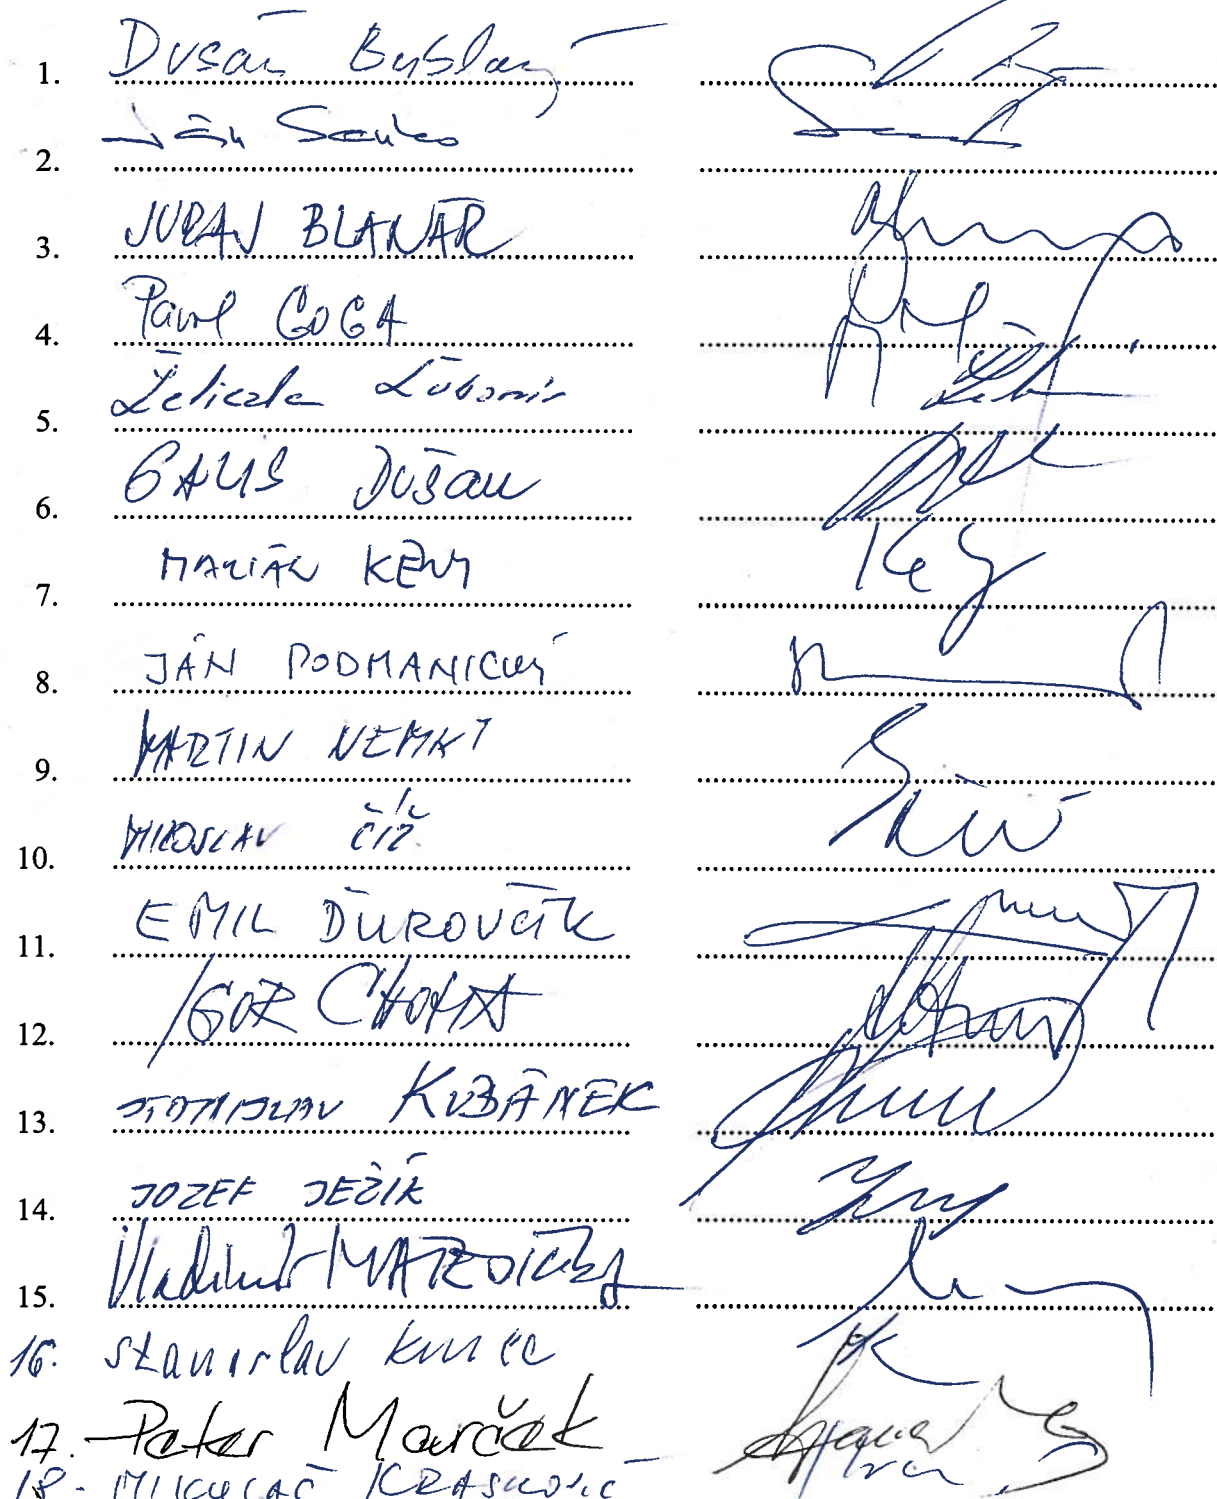 1. Dušan Bublavý
2. Ján Senko
3. JURAJ BLANÁR
4. Pavol GOGA
5. Želiezka Ľubomír
6. GALIS DUŠAN
7. MARIÁN KÉRY
8. JÁN PODMANICKÝ
9. MARTIN NEMKY
10. MIROSLAV ČÍŽ
11. EMIL ĎUROVČÍK
12. IGOR CHOMA
13. STANISLAV KUBÁNEK
14. JOZEF JEŽÍK
15. Vladimír MATEJIČKA
16. Stanislav Kmec
17. Peter Marček
18. MIKULÁŠ KRAJKOVIČ